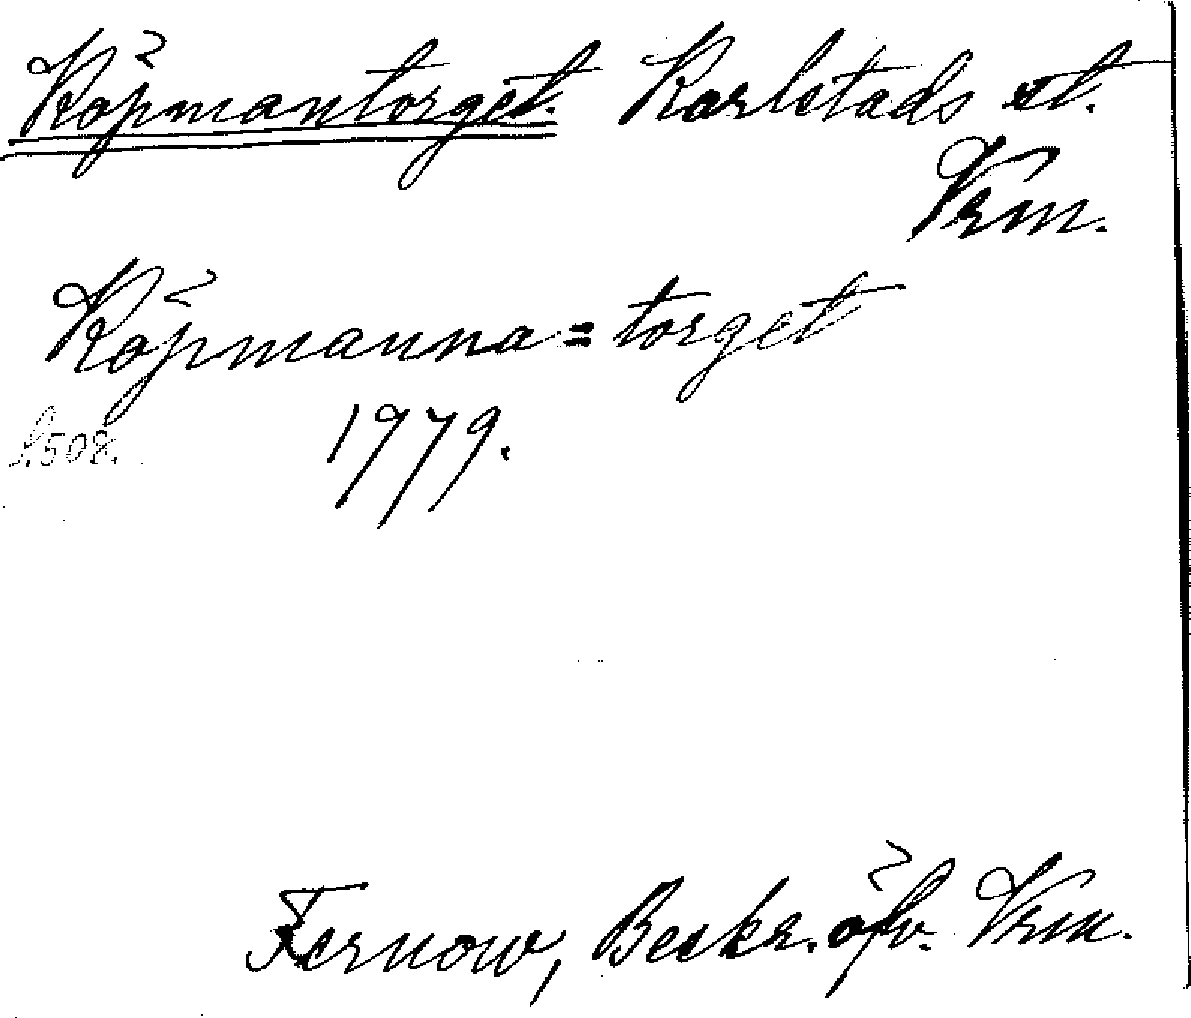 Köpmantorget. Karlstads st.
Vrm.
Köpmanna=torget
s. 508. 1779.
Fernow, Beskr. öfv. Vrm.